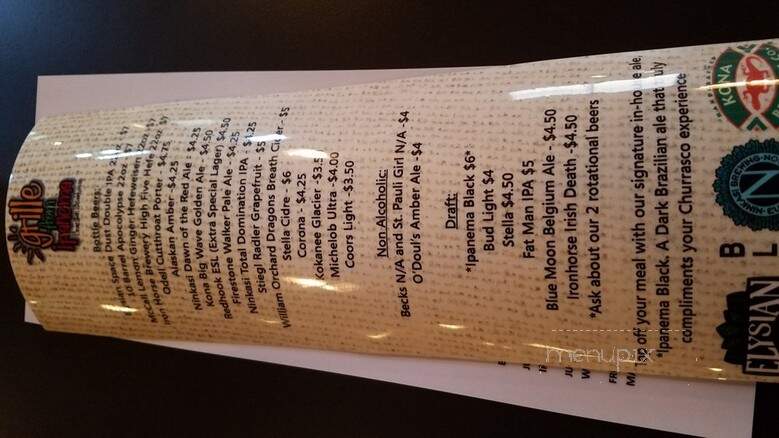 Grille
From
Ipanema
Bottle Beers:
Space Dust Double IPA $7
10 Barrel Apocalypse 22oz $7
10 Lemon Ginger Hefeweisen $7
McCall Brewery High Five Hefe 22oz $7
Iron Horse Cutthroat Porter - $4.75
Alaskan Amber -$4.25
Ninkasi Dawn of the Red Ale - $4.25
Kona Big Wave Golden Ale - $4.50
Redhook ESL (Extra Special Lager) $4.50
Firestone Walker Pale Ale - $4.25
Ninkasi Total Domination IPA - $4.25
Stiegl Radler Grapefruit - $5
William Orchard Dragons Breath Cider - $5
Stella Cidre - $6
Corona - $4.25
Kokanee Glacier -$3.5
Michelob Ultra -$4.00
Coors Light -$3.50
Non Alcoholic:
Becks N/A and St. Pauli Girl N/A -$4
O'Doul's Amber Ale -$4
Draft:
*Ipanema Black $6*
Bud Light $4
Stella $4.50
Fat Man IPA $5
Blue Moon Belgium Ale - $4.50
Ironhorse Irish Death -$4.50
*Ask about our 2 rotational beers
Top off your meal with our signature in-house ale,
*Ipanema Black. A Dark Brazilian ale that truly
compliments your Churrasco experience
KONA
NINKASI BREWING
B L
ELYSIAN
menupix